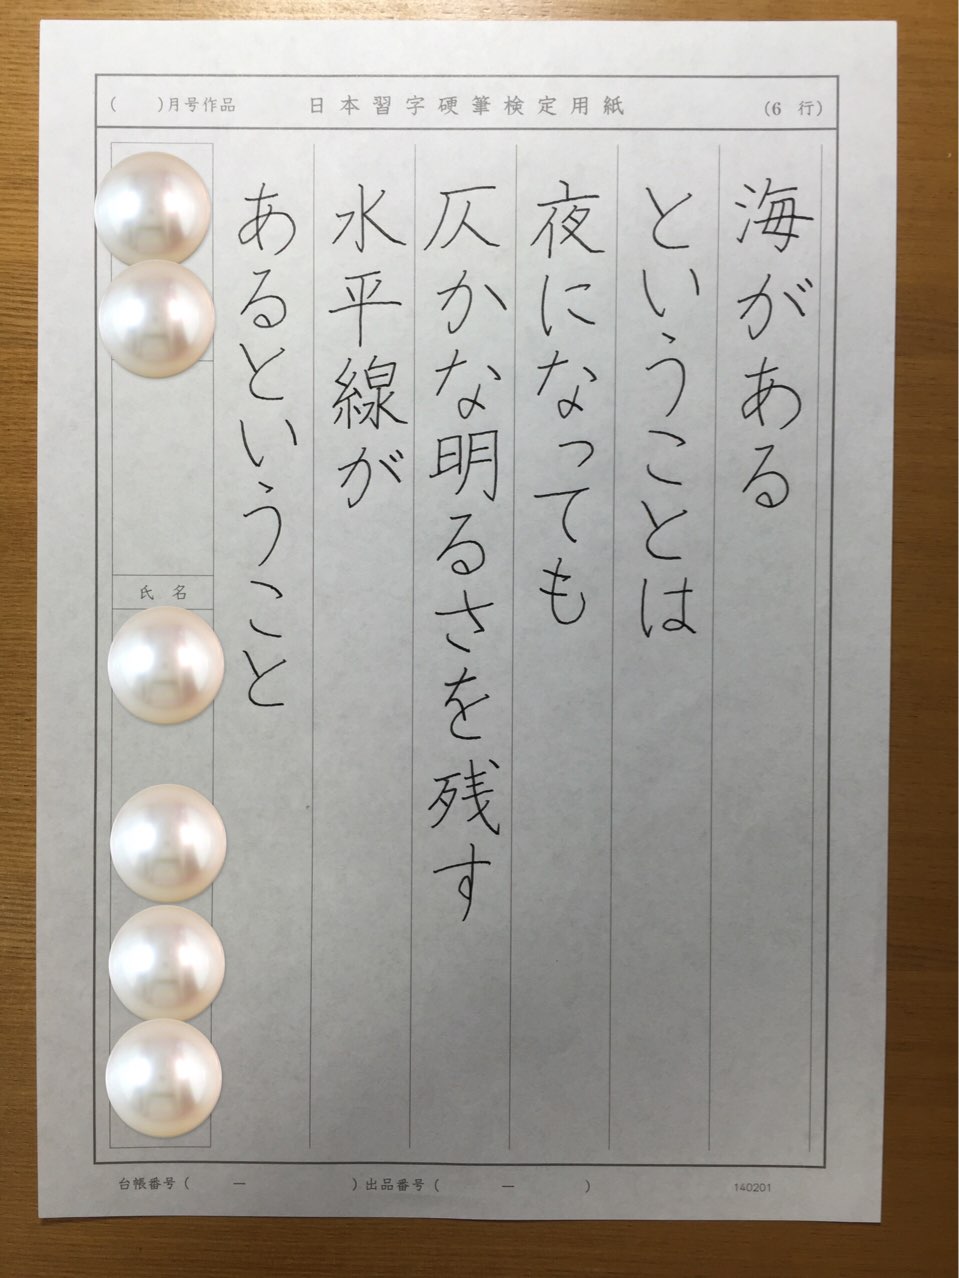 （　　）月号作品　日本習字硬筆検定用紙　（6　行）
海がある
ということは
夜になっても
仄かな明るさを残す
水平線が
あるということ
氏名
台帳番号（　　ー　　　）出品番号（　　ー　　　）　140201